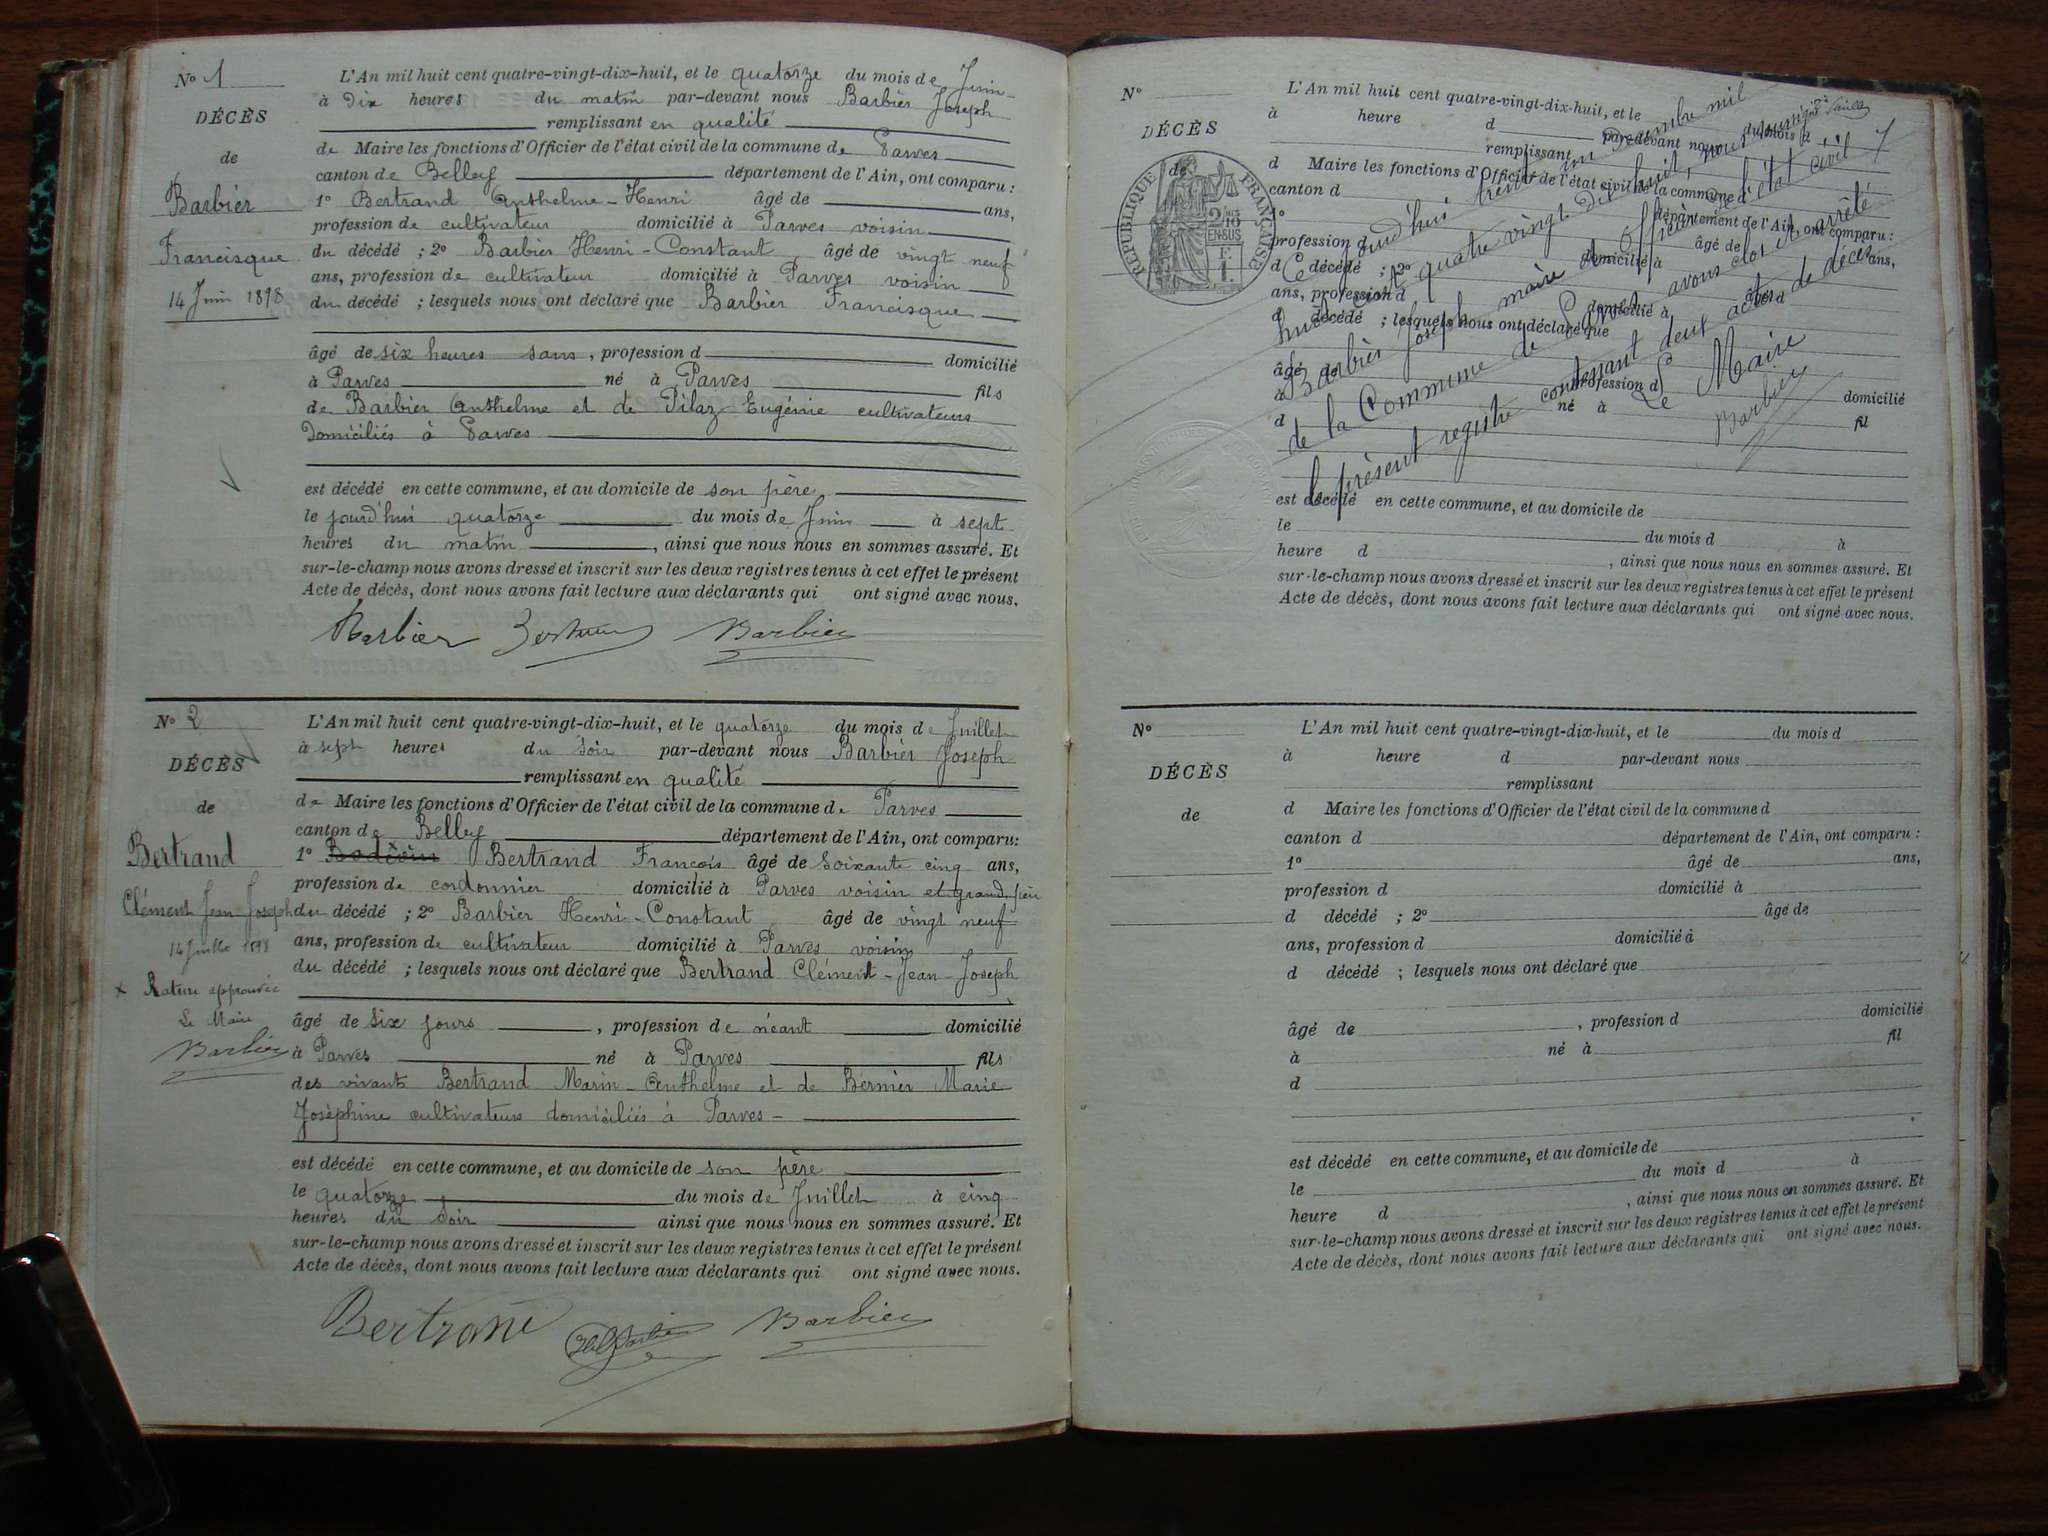 N° 1
DÉCÈS
de
Barbier
Francisque
14 Juin 1898
L'An mil huit cent quatre-vingt-dix-huit, et le quatorze du mois de Juin
à Dix heures du matin par-devant nous Barbier Joseph
remplissant en qualité
de Maire les fonctions d'Officier de l'état civil de la commune de Parves
canton de Belley département de l'Ain, ont comparu :
1° Bertrand Anthelme-Henri âgé de ans,
profession de cultivateur domicilié à Parves voisin
du décédé ; 2° Barbier Henri-Constant âgé de vingt neuf
ans, profession de cultivateur domicilié à Parves voisin
du décédé ; lesquels nous ont déclaré que Barbier Francisque
âgé de six heures sans, profession d domicilié
à Parves né à Parves fils
de Barbier Anthelme et de Pilaz Eugénie cultivateurs
Domiciliés à Parves
est décédé en cette commune, et au domicile de son père
le jourd'hui quatorze du mois de Juin à sept
heures du matin, ainsi que nous nous en sommes assuré. Et
sur-le-champ nous avons dressé et inscrit sur les deux registres tenus à cet effet le présent
Acte de décès, dont nous avons fait lecture aux déclarants qui ont signé avec nous.
Barbier Bertrand Barbier
N° 2
DÉCÈS
de
Bertrand
Clément Jean-Joseph
14 Juillet 1898
x Rature approuvée
Le Maire
Barbier
L'An mil huit cent quatre-vingt-dix-huit, et le quatorze du mois de Juillet
à sept heures du soir par-devant nous Barbier Joseph
remplissant en qualité
de Maire les fonctions d'Officier de l'état civil de la commune de Parves
canton de Belley département de l'Ain, ont comparu:
1° Bertrand François âgé de soixante cinq ans,
profession de cordonnier domicilié à Parves voisin et grand-père
du décédé ; 2° Barbier Henri-Constant âgé de vingt neuf
ans, profession de cultivateur domicilié à Parves voisin
du décédé ; lesquels nous ont déclaré que Bertrand Clément-Jean-Joseph
âgé de six jours, profession de néant domicilié
à Parves né à Parves fils
des vivants Bertrand Marin-Anthelme et de Bernier Marie
Joséphine cultivateurs domiciliés à Parves-
est décédé en cette commune, et au domicile de son père
le quatorze du mois de Juillet à cinq
heures du soir ainsi que nous nous en sommes assuré. Et
sur-le-champ nous avons dressé et inscrit sur les deux registres tenus à cet effet le présent
Acte de décès, dont nous avons fait lecture aux déclarants qui ont signé avec nous.
Bertrand Barbier
N°
DÉCÈS
de
RÉPUBLIQUE FRANÇAISE
2/10
EN SUS
L'An mil huit cent quatre-vingt-dix-huit, et le du mois d
à heure d par-devant nous
remplissant
d Maire les fonctions d'Officier de l'état civil de la commune d
canton d département de l'Ain, ont comparu :
1° âgé de ans,
profession d domicilié à
d décédé ; 2° âgé d
ans, profession d domicilié à
d décédé ; lesquels nous ont déclaré que
âgé de profession d domicilié
à né à fil
d
Ce jourd'hui trente un Décembre mil
huit cent quatre vingt dix huit, nous soussigné
Barbier Joseph maire et officier de l'état civil
de la Commune de Parves avons clos et arrêté
le présent registre contenant deux actes de décès
Le Maire
Barbier
est décédé en cette commune, et au domicile de
le du mois d à
heure d , ainsi que nous nous en sommes assuré. Et
sur-le-champ nous avons dressé et inscrit sur les deux registres tenus à cet effet le présent
Acte de décès, dont nous avons fait lecture aux déclarants qui ont signé avec nous.
N°
DÉCÈS
de
L'An mil huit cent quatre-vingt-dix-huit, et le du mois d
à heure d par-devant nous
remplissant
d Maire les fonctions d'Officier de l'état civil de la commune d
canton d département de l'Ain, ont comparu :
1° âgé de ans,
profession d domicilié à
d décédé ; 2° âgé de
ans, profession d domicilié à
d décédé ; lesquels nous ont déclaré que
âgé de , profession d domicilié
à né à fil
d
est décédé en cette commune, et au domicile de
le du mois d à
heure d , ainsi que nous nous en sommes assuré. Et
sur-le-champ nous avons dressé et inscrit sur les deux registres tenus à cet effet le présent
Acte de décès, dont nous avons fait lecture aux déclarants qui ont signé avec nous.